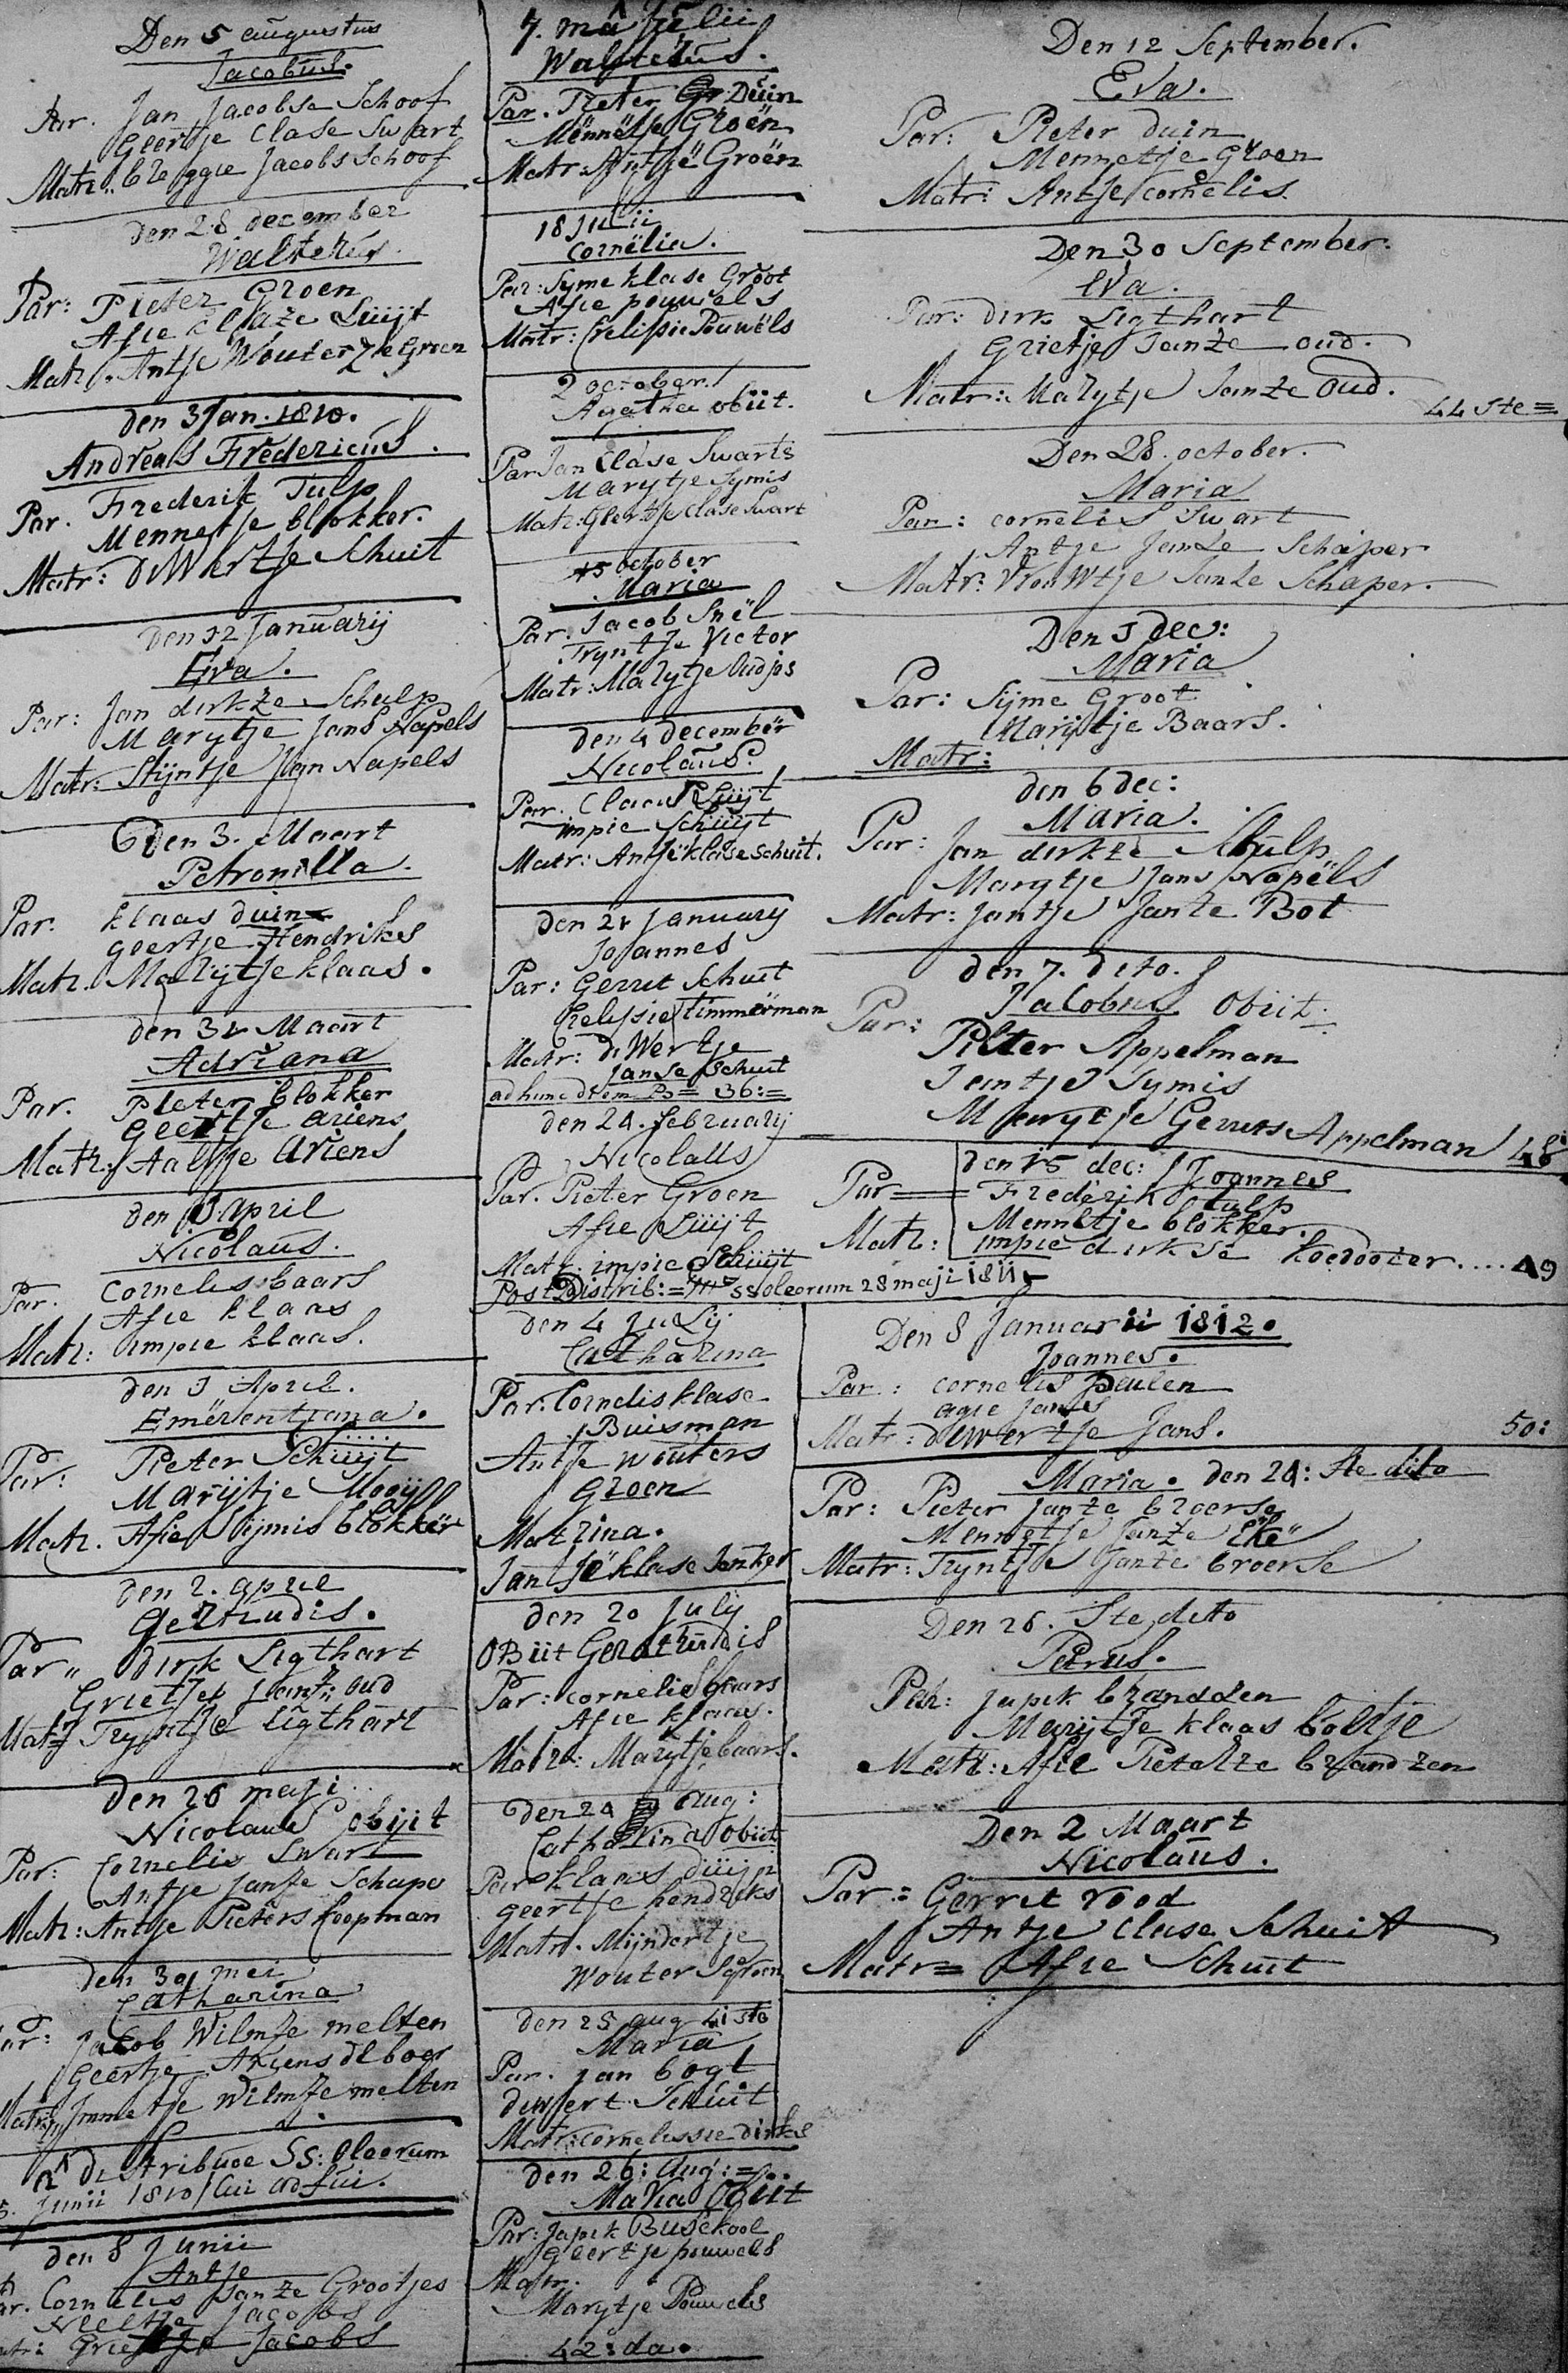 Den 5 augustus
Jacobus.
Par. Jan Jacobse Schoof
Geertje Clase Swart
Matr. Jacobs Schoof
den 28 december
Walterus
Par: Pieter Groen
Afie Claze Luijt
Matr. Antje Wouterz Groen
den 3 Jan. 1810.
Andreas Fredericus.
Par. Frederik Tulp
Mennetje blokker.
Matr: diWertje Schuit
den 12 Januarij
Eva.
Par: Jan dirkze Schulp
Marytje Jans Napels
Matr: Stijntje Jan Napels
den 3. Maart
Petronilla.
Par. klaas duin
geertje Hendriks
Matr. Marijtje klaas.
den 31 Maart
Adriana
Par. Pieter blokker
Geertje ariens
Matr. Aaltje Ariens
den April
Nicolaus.
Par. Cornelis baars
Afie klaas
Matr: impie klaas.
den April.
Emerentiana.
Par: Pieter Schuijt
Marijtje Mooij
Matr. Afie Sijmis blokker
den 2. april
Gertrudis.
Par„ dirk Ligthart
Grietje oud
Matr Tryntje Ligthart
den 26 maji
Nicolaus obijt
Par: Cornelis Swart
Antje Janze Schaper
Matr: Antje Pieters koopman
den 30 mei
Catharina
Par: Jacob Wilmze melten
Geertje Ariens de boer
Matr Immetje Wilmze melten
distribuoe SS: Oleorum
5. Junii 1810 cui adfui.
den 8 Junii
Antje
Par. Cornelis Janze Grootjes
Neeltje Jacobs
Matr: Grietje Jacobs
7. ma Julii
Walterus.
Par. Pieter Duin
Mennetje Groen
Matr. Antje Groen
18 Julii
Cornelia.
Par: Syme klase Groot
Afie pouwels
Matr: Crelisie Pouwels
2 october.
Agatha obiit.
Par Jan Clase Swarts
Marytje Symis
Matr: Geertje Clase Swart
15 october
Maria
Par. Jacob Snel
Tryntje Victor
Matr: Marytje Oudjes
den 4 december
Nicolaus.
Par. Claas Luijt
impie Schuijt
Matr: Antje klase Schuit.
den 21 January
Joannes
Par: Gerrit Schuit
Crelisie timmerman
Matr: diWertje
Janse Schuit
ad hunc diem 36:=
den 24. februarij
Nicolaus
Par. Pieter Groen
Afie Luijt
Matr. impie Schuijt
Post Distrib:= ss oleorum 28 maji 1811
den 4 Julij
Catharina
Par. Cornelis klase
Buisman
Antje wouters
Groen
Matrina.
Jantje klase Jonker
den 20 July
OBiit Gertrudis
Par: cornelis baars
Afie klaas.
Matr: Marytje baars.
den 24 aug:
Catharina obiit
Par klaas duijn
geertje hendriks
Matr. Mijndertje
Wouters Groen
den 25 aug 41 sta
Maria
Par. jan bogt
dewert Schuit
Matr: cornelissie dirkse
den 26: Aug:=..
Maria Obiit
Par: Japik Buiskool
geertje pouwels
Matr.
Marytje Pouwels
42:da.
Den 12 September.
Eva.
Par: Pieter Duin
Mennetje Groen
Matr: Antje cornelis.
Den 30 September.
Eva.
Par: dirk Ligthart
Grietje Janze oud.
Matr: Marytje Janze Oud.
44 ste=
Den 28. october.
Maria
Par: cornelis Swart
Antje Janze Schaper
Matr: Vrouwtje Janze Schaper.
Den 5 dec:
Maria
Par: Sijme Groot
Marijtje Baars.
Matr:
den 6 dec:
Maria.
Par: Jan dirkze Schulp
Marytje Jans Napels
Matr: jantje Janze Bot
den 7. dito.
Jacobus obiit.
Par: Pieter Appelman
Jantje Symis
Marytje Gerrits Appelman 48
den 15 dec: Joannes
Par= Frederik tulp
Mennetje blokker.
Matr: impie dirkse koedooder....49
Den 8 Januarii 1812.
Joannes.
Par: cornelis peulen
agie Jans
Matr: dewertje Jans. 50:
Maria. den 24: Ste dito
Par: Pieter Janze broerse
Mennetje Janze
Matr: Tryntje Janze broerse
Den 26. Ste dito
Petrus.
Par: japik brandzen
Marijtje klaas boltje
Matr: Afie Pieterze brandzen
Den 2 Maart
Nicolaus.
Par:= Gerrit rood
Antje clase Schuit
Matr= Afie Schuit